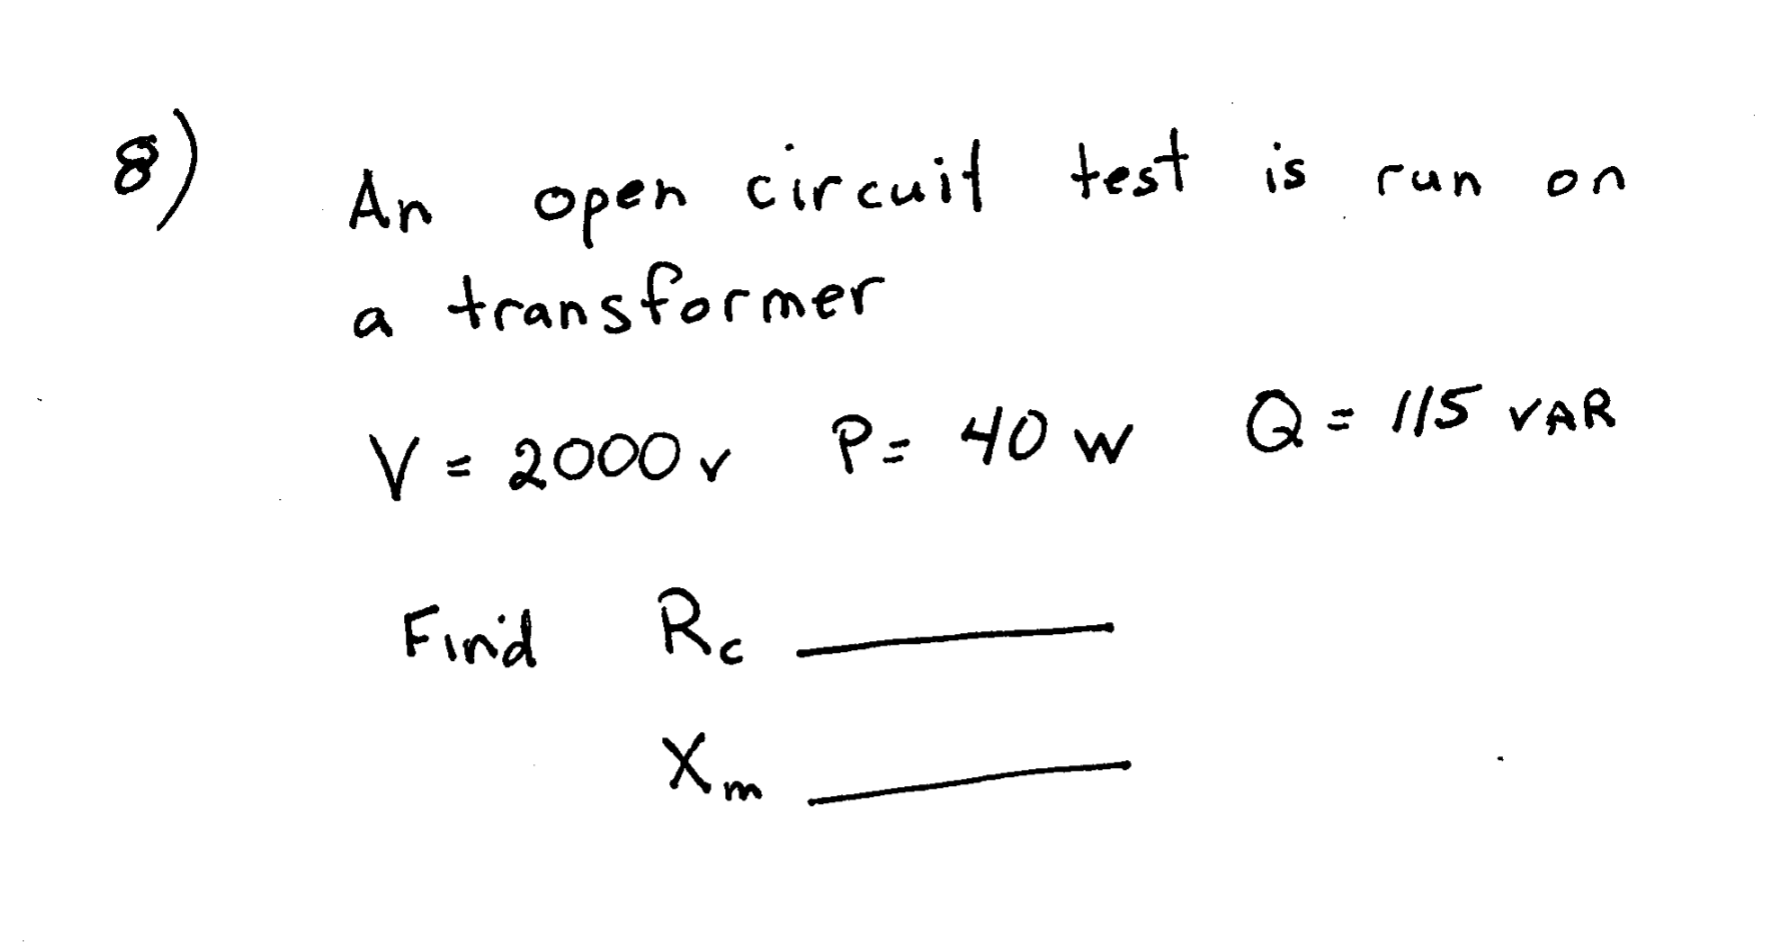 8) An open circuit test is run on
a transformer
V = 2000 v P = 40 W Q = 115 VAR
Find Rc
Xm